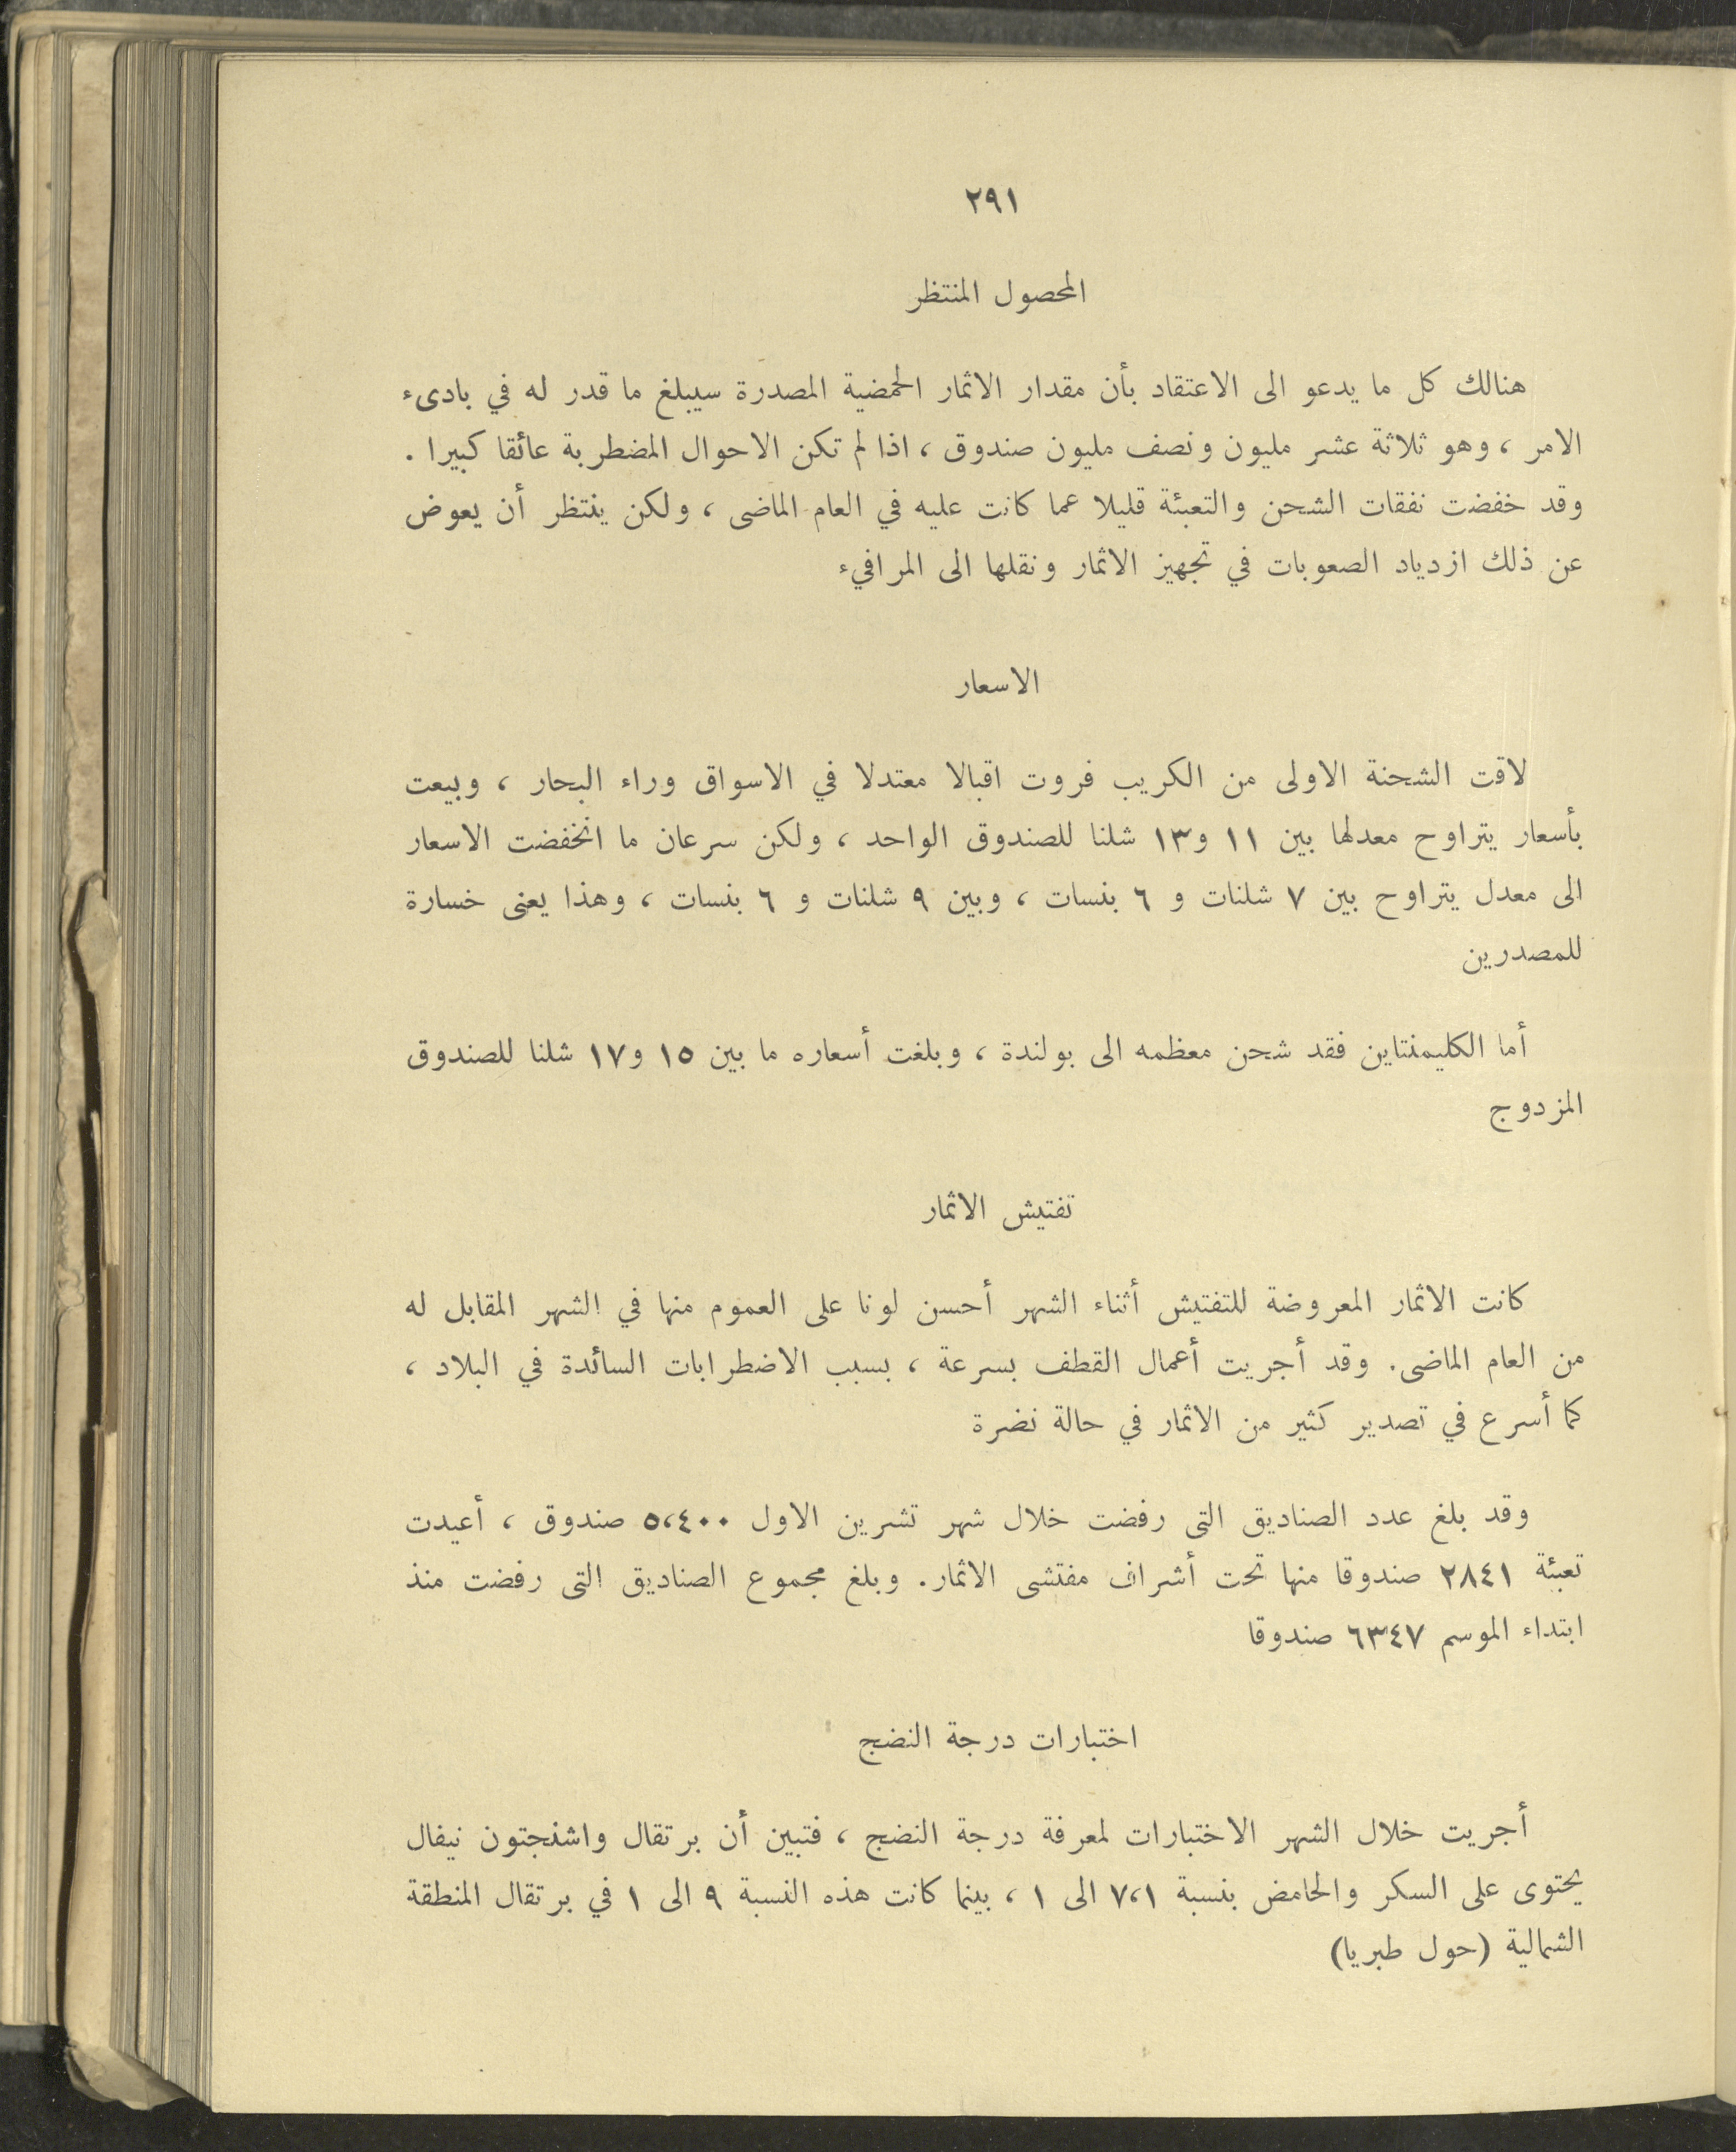 ٢٩١
المحصول المنتظر
هنالك كل ما يدعو الى الاعتقاد بأن مقدار الاثمار الحمضية المصدرة سيبلغ ما قدر له في بادىء
الامر ، وهو ثلاثة عشر مليون ونصف مليون صندوق ، اذا لم تكن الاحوال المضطربة عائقا كبيرا .
وقد خفضت نفقات الشحن والتعبئة قليلا عما كانت عليه في العام الماضى ، ولكن ينتظر أن يعوض
عن ذلك ازدياد الصعوبات في تجهيز الاثمار ونقلها الى المرافيء
الاسعار
لاقت الشحنة الاولى من الكريب فروت اقبالا معتدلا في الاسواق وراء البحار ، وبيعت
بأسعار يتراوح معدلها بين ١١ و١٣ شلنا للصندوق الواحد ، ولكن سرعان ما انخفضت الاسعار
الى معدل يتراوح بين ٧ شلنات و ٦ بنسات ، وبين ٩ شلنات و ٦ بنسات ، وهذا يعنى خسارة
للمصدرين
أما الكليمنتاين فقد شحن معظمه الى بولندة ، وبلغت أسعاره ما بين ١٥ و١٧ شلنا للصندوق
المزدوج
تفتيش الاثمار
كانت الاثمار المعروضة للتفتيش أثناء الشهر أحسن لونا على العموم منها في الشهر المقابل له
من العام الماضى. وقد أجريت أعمال القطف بسرعة ، بسبب الاضطرابات السائدة في البلاد ،
كما أسرع في تصدير كثير من الاثمار في حالة نضرة
وقد بلغ عدد الصناديق التى رفضت خلال شهر تشرين الاول ٥،٤٠٠ صندوق ، أعيدت
تعبئة ٢٨٤١ صندوقا منها تحت أشراف مفتشى الاثمار. وبلغ مجموع الصناديق التى رفضت منذ
ابتداء الموسم ٦٣٤٧ صندوقا
اختبارات درجة النضج
أجريت خلال الشهر الاختبارات لمعرفة درجة النضج ، فتبين أن برتقال واشنجتون نيفال
يحتوى على السكر والحامض بنسبة ٧،١ الى ١ ، بينما كانت هذه النسبة ٩ الى ١ في برتقال المنطقة
الشمالية (حول طبريا)